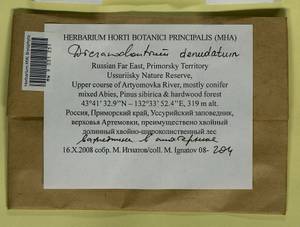 HERBARIUM HORTI BOTANICI PRINCIPALIS (MHA)
Dicranodontium denudatum
Russian Far East, Primorsky Territory
Ussuriisky Nature Reserve,
Upper course of Artyomovka River, mostly conifer
mixed Abies, Pinus sibirica & hardwood forest
43°41'32.9"N – 132°33'52.4"E, 319 m alt.
Россия, Приморский край, Уссурийский заповедник,
верховья Артемовки, преимущественно хвойный
долинный хвойно-широколиственный лес
16.X.2008 собр. М. Игнатов/coll. M. Ignatov 08-204